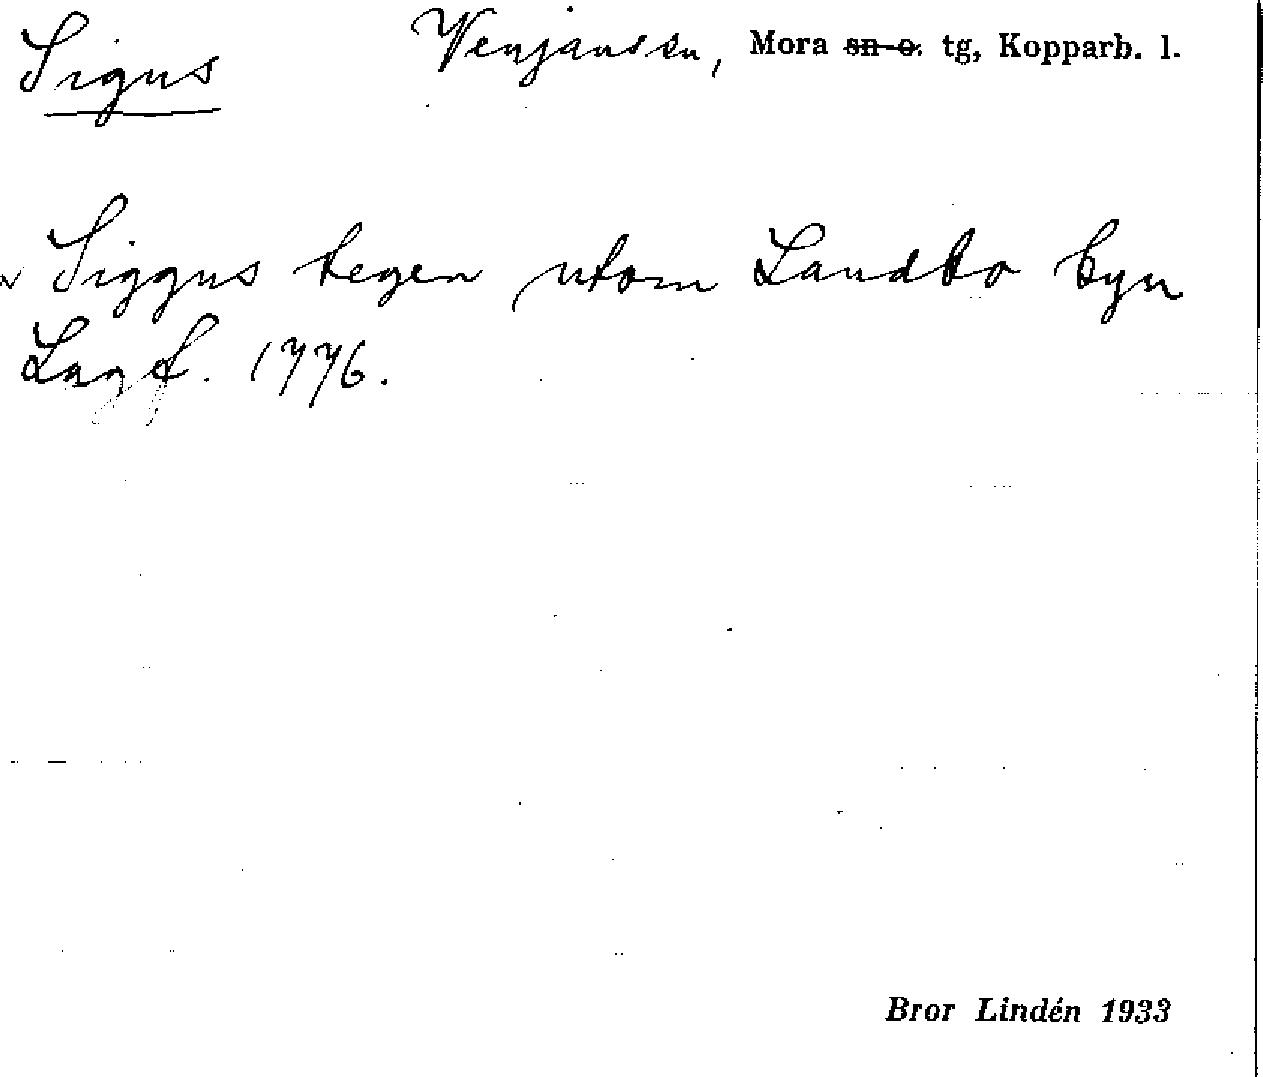 Sigus Venjans sn, Mora sn o. tg, Kopparb. l.
Siggus tegen utom Landbo byn
Lagf. 1776.
Bror Lindén 1933